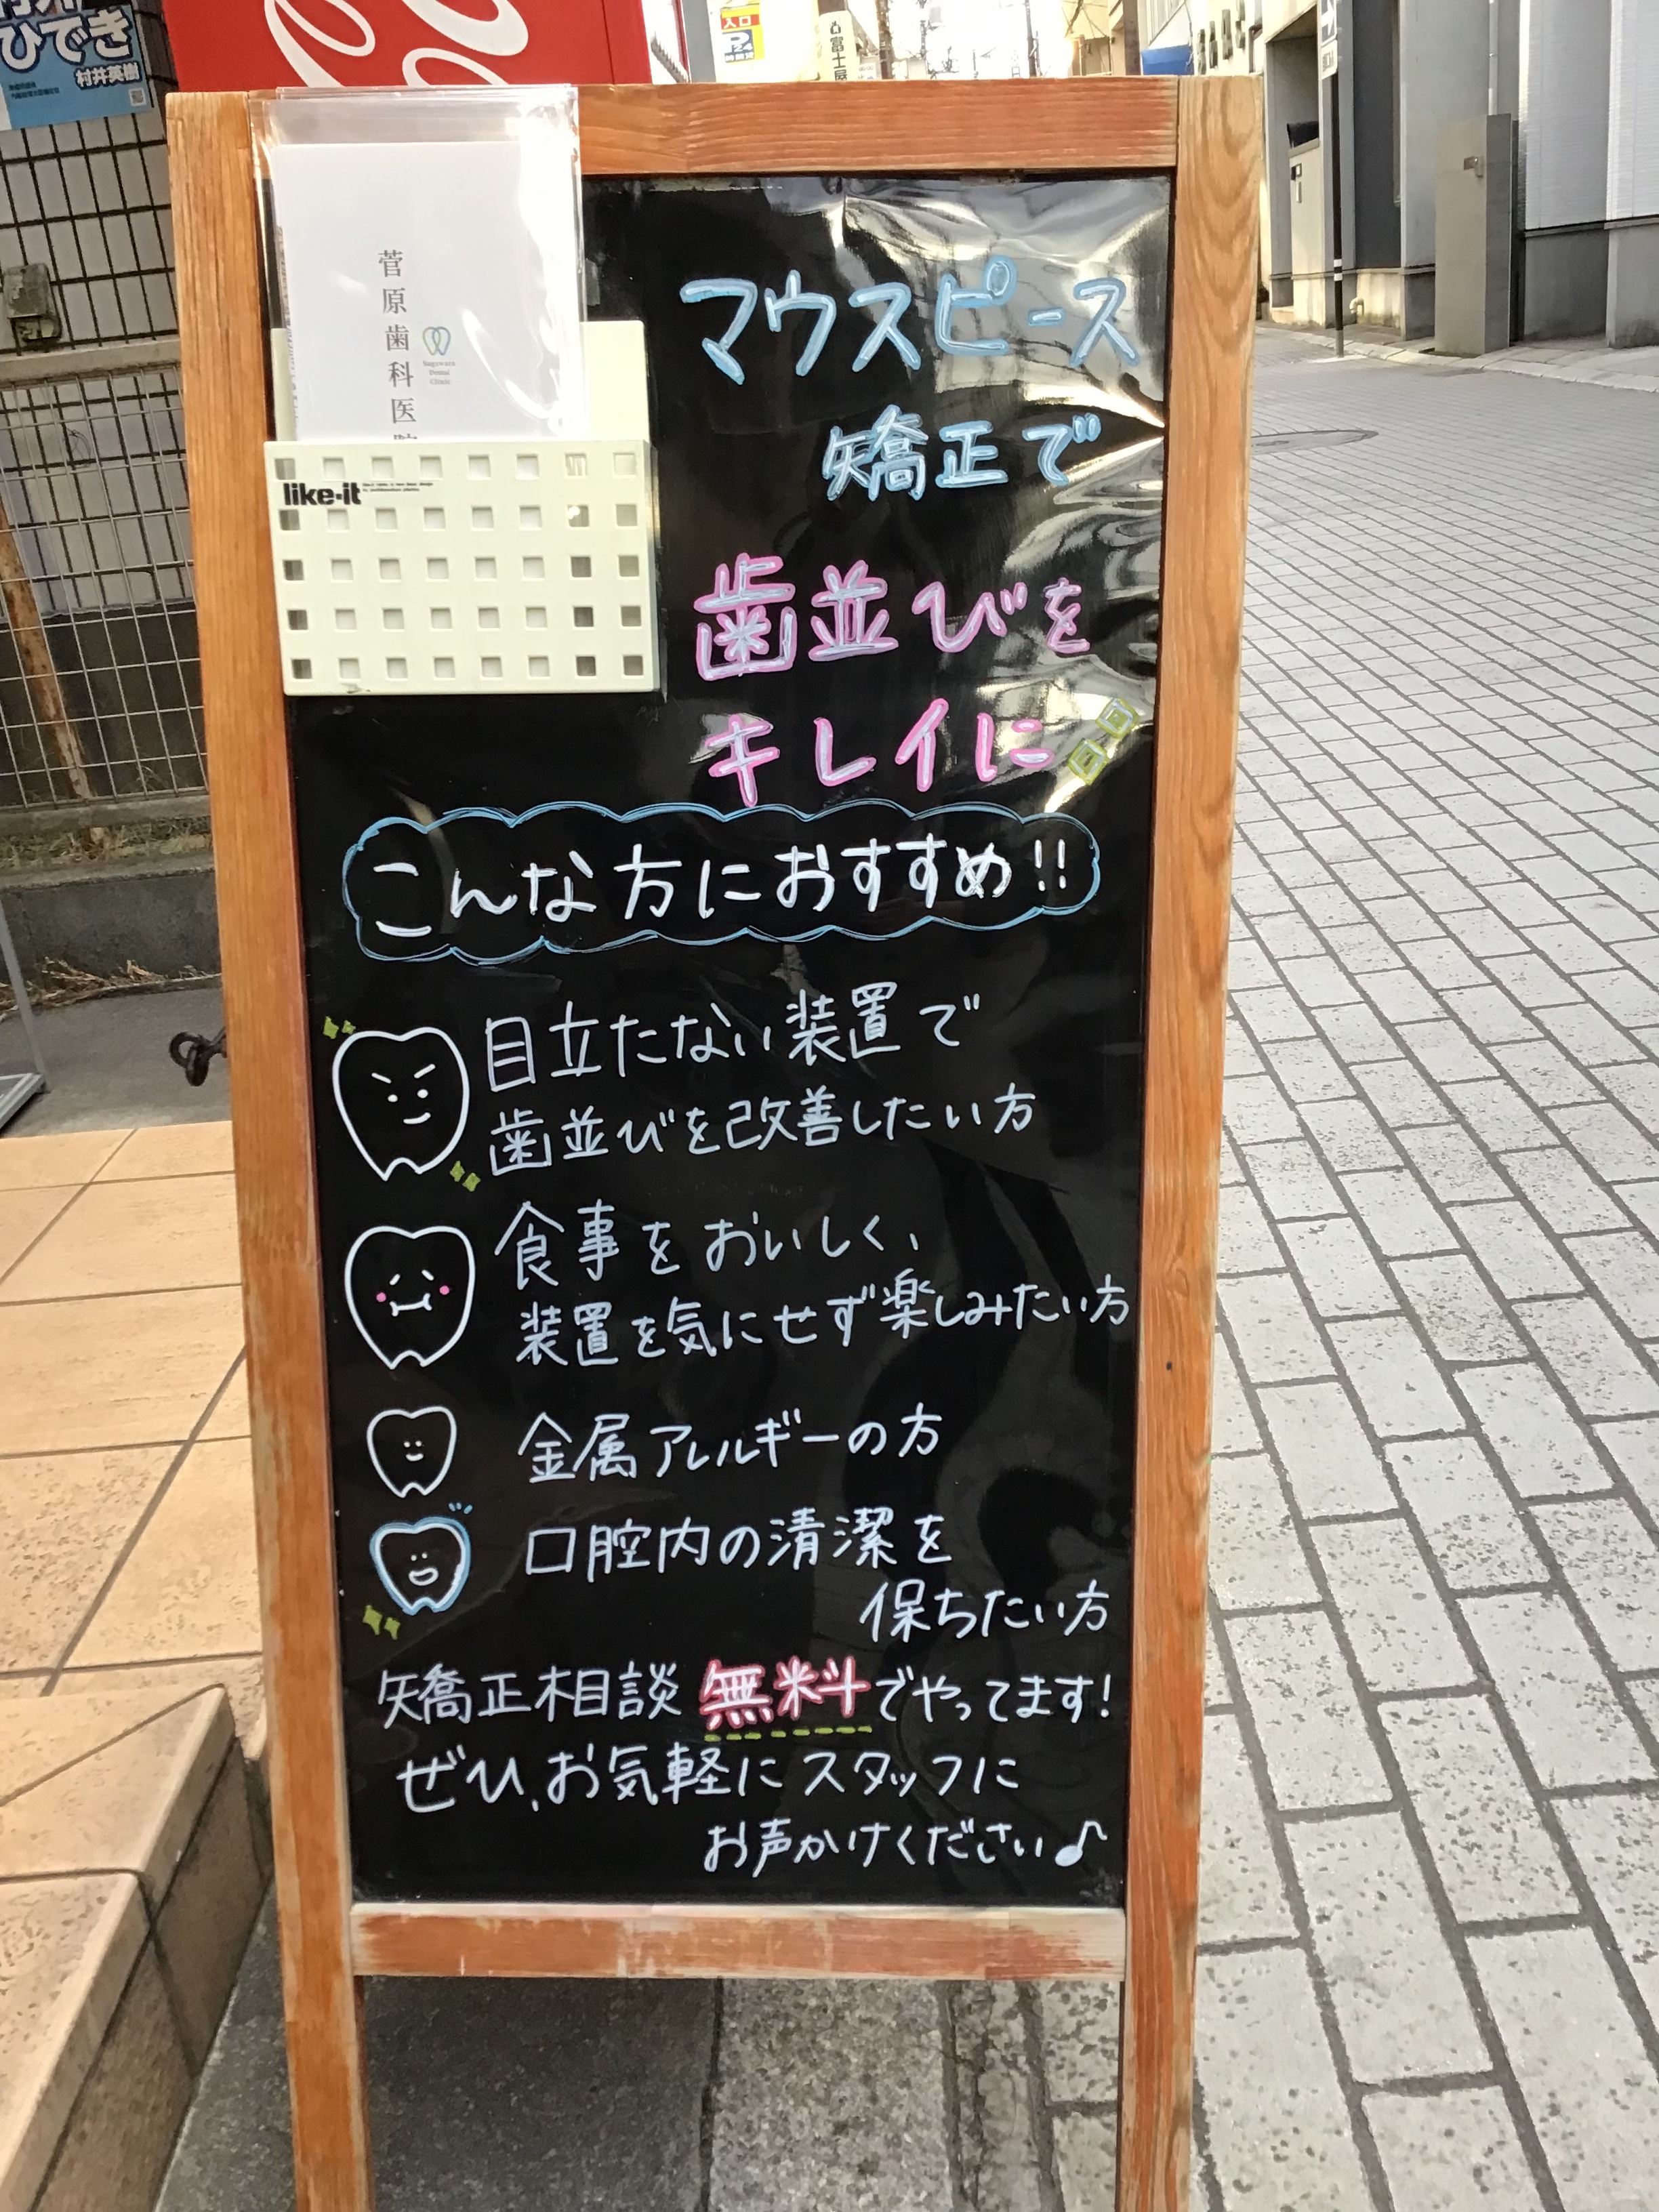 ひでき
村井英樹
入口
P24
富士屋
菅原歯科医院
Sugawara
Dental
Clinic
like-it
マウスピース
矯正で
歯並びを
キレイに
こんな方におすすめ!!
目立たない装置で
歯並びを改善したい方
食事をおいしく、
装置を気にせず楽しみたい方
金属アレルギーの方
口腔内の清潔を
保ちたい方
矯正相談 無料でやってます!
ぜひ、お気軽にスタッフに
お声かけください♪